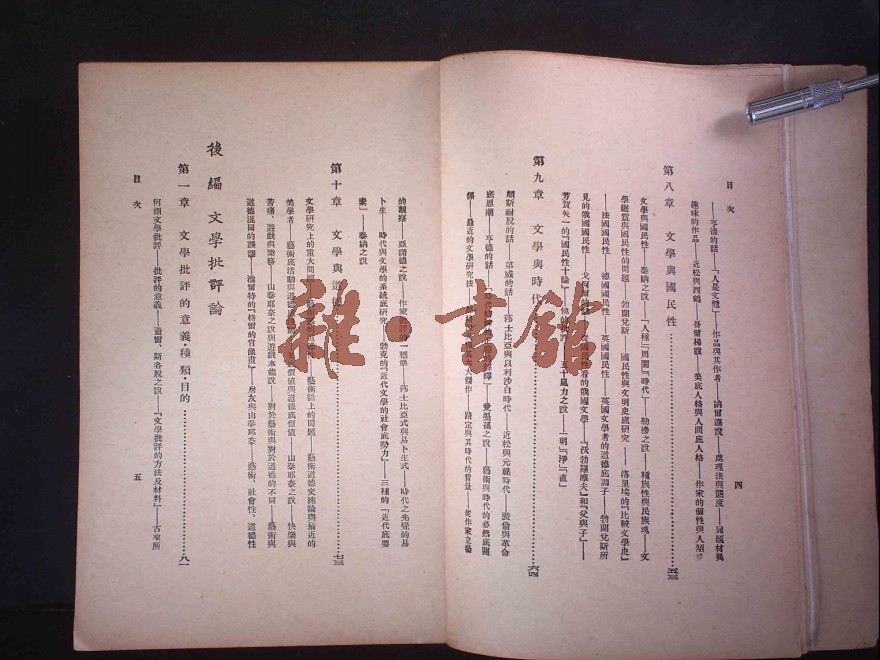 目次
四
──亨德的話──「人是文體」──作品與其作者
趣味的作品──近松與西鶴──美底人格與人間底人格──作家的個性與人類
第八章 文學與國民性…………五三
文學與國民性──泰納之說──「人種」「周圍」「時代」──種族性與民族魂──文
學鑑賞與國民性的問題──勃蘭兌斯──國民性與文明史底研究──洛里埃的「比較文學史」
──法國國民性──德國國民性──英國國民性──英國文學者的道德底調子──勃蘭兌斯所
見的俄國國民性──的俄國文學──和「父與子」──
芳賀矢一的「國民性十論」──五十嵐力之說──「明」「淨」「直」
第九章 文學與時代…………六四
的話──莎士比亞與以利沙白時代──近松與元祿時代──裴倫與革命
底思潮──亨德的話──愛墨孫之說──藝術與時代的必然底關
係──最近的文學研究法──大傑作──與其時代的背景──從作家立場
的觀察──亞諾德之說──作家批評的一標準──莎士比亞式與易卜生式──時代之先覺的易
卜生──時代與文學的系統底研究──勃克的「近代文學的社會底勢力」──三種的「近代底要
素」──泰納之說
第十章 文學與道德…………七三
文學研究上的重大問題──藝術論上的問題──藝術道德交涉論與最近的
美學者──藝術底活動與道德底──價值與道德底價值──山泰耶奈之說──快樂與
苦痛、遊戲與勞務──山泰耶奈之說與遊戲本能說──對於藝術與對於道德的不同──藝術與
道德混同的謬譯──淮爾特的「格雷的肖像畫」──居友與山泰耶奈──藝術、社會性、道德性
後編 文學批評論
第一章 文學批評的意義・種類・目的…………八一
何謂文學批評──批評的意義──蓋雷、斯各脫之說──「文學批評的方法及材料」──古來所
目次
五
雜・書館